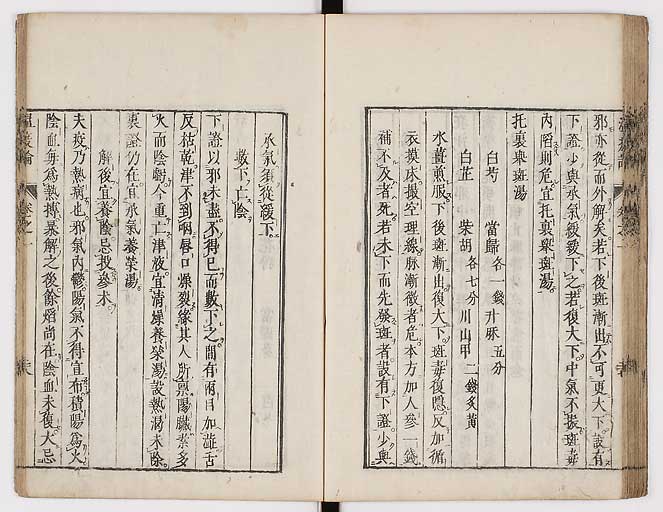 邪亦從而外解矣若下後斑漸出不可更大下設有
下證少與承氣緩緩下之若復大下中氣不振斑毒
內陷則危宜托裏舉斑湯
托裏舉斑湯
白芍 當歸各一錢 升麻五分
白芷 柴胡各七分 川山甲二錢炙黃
水薑煎服下後斑漸出復大下斑毒復隱反加循
衣摸床撮空理線脉漸微者危本方加人參一錢
補不及者死若未下而先發斑者設有下證少與
承氣須從緩下
數下亡陰
下證以邪未盡不得已而數下之間有兩目加澁舌
反枯乾津不到咽唇口燥裂緣其人所禀陽臟素多
火而陰虧今重亡津液宜清燥養榮湯設熱渴未除
裏證仍在宜承氣養榮湯
解後宜養陰忌投參朮
夫疫乃熱病也邪氣內鬱陽氣不得宣布積陽為火
陰血每為熱搏暴解之後餘焰尚在陰血未復大忌
溫疫論 卷之一